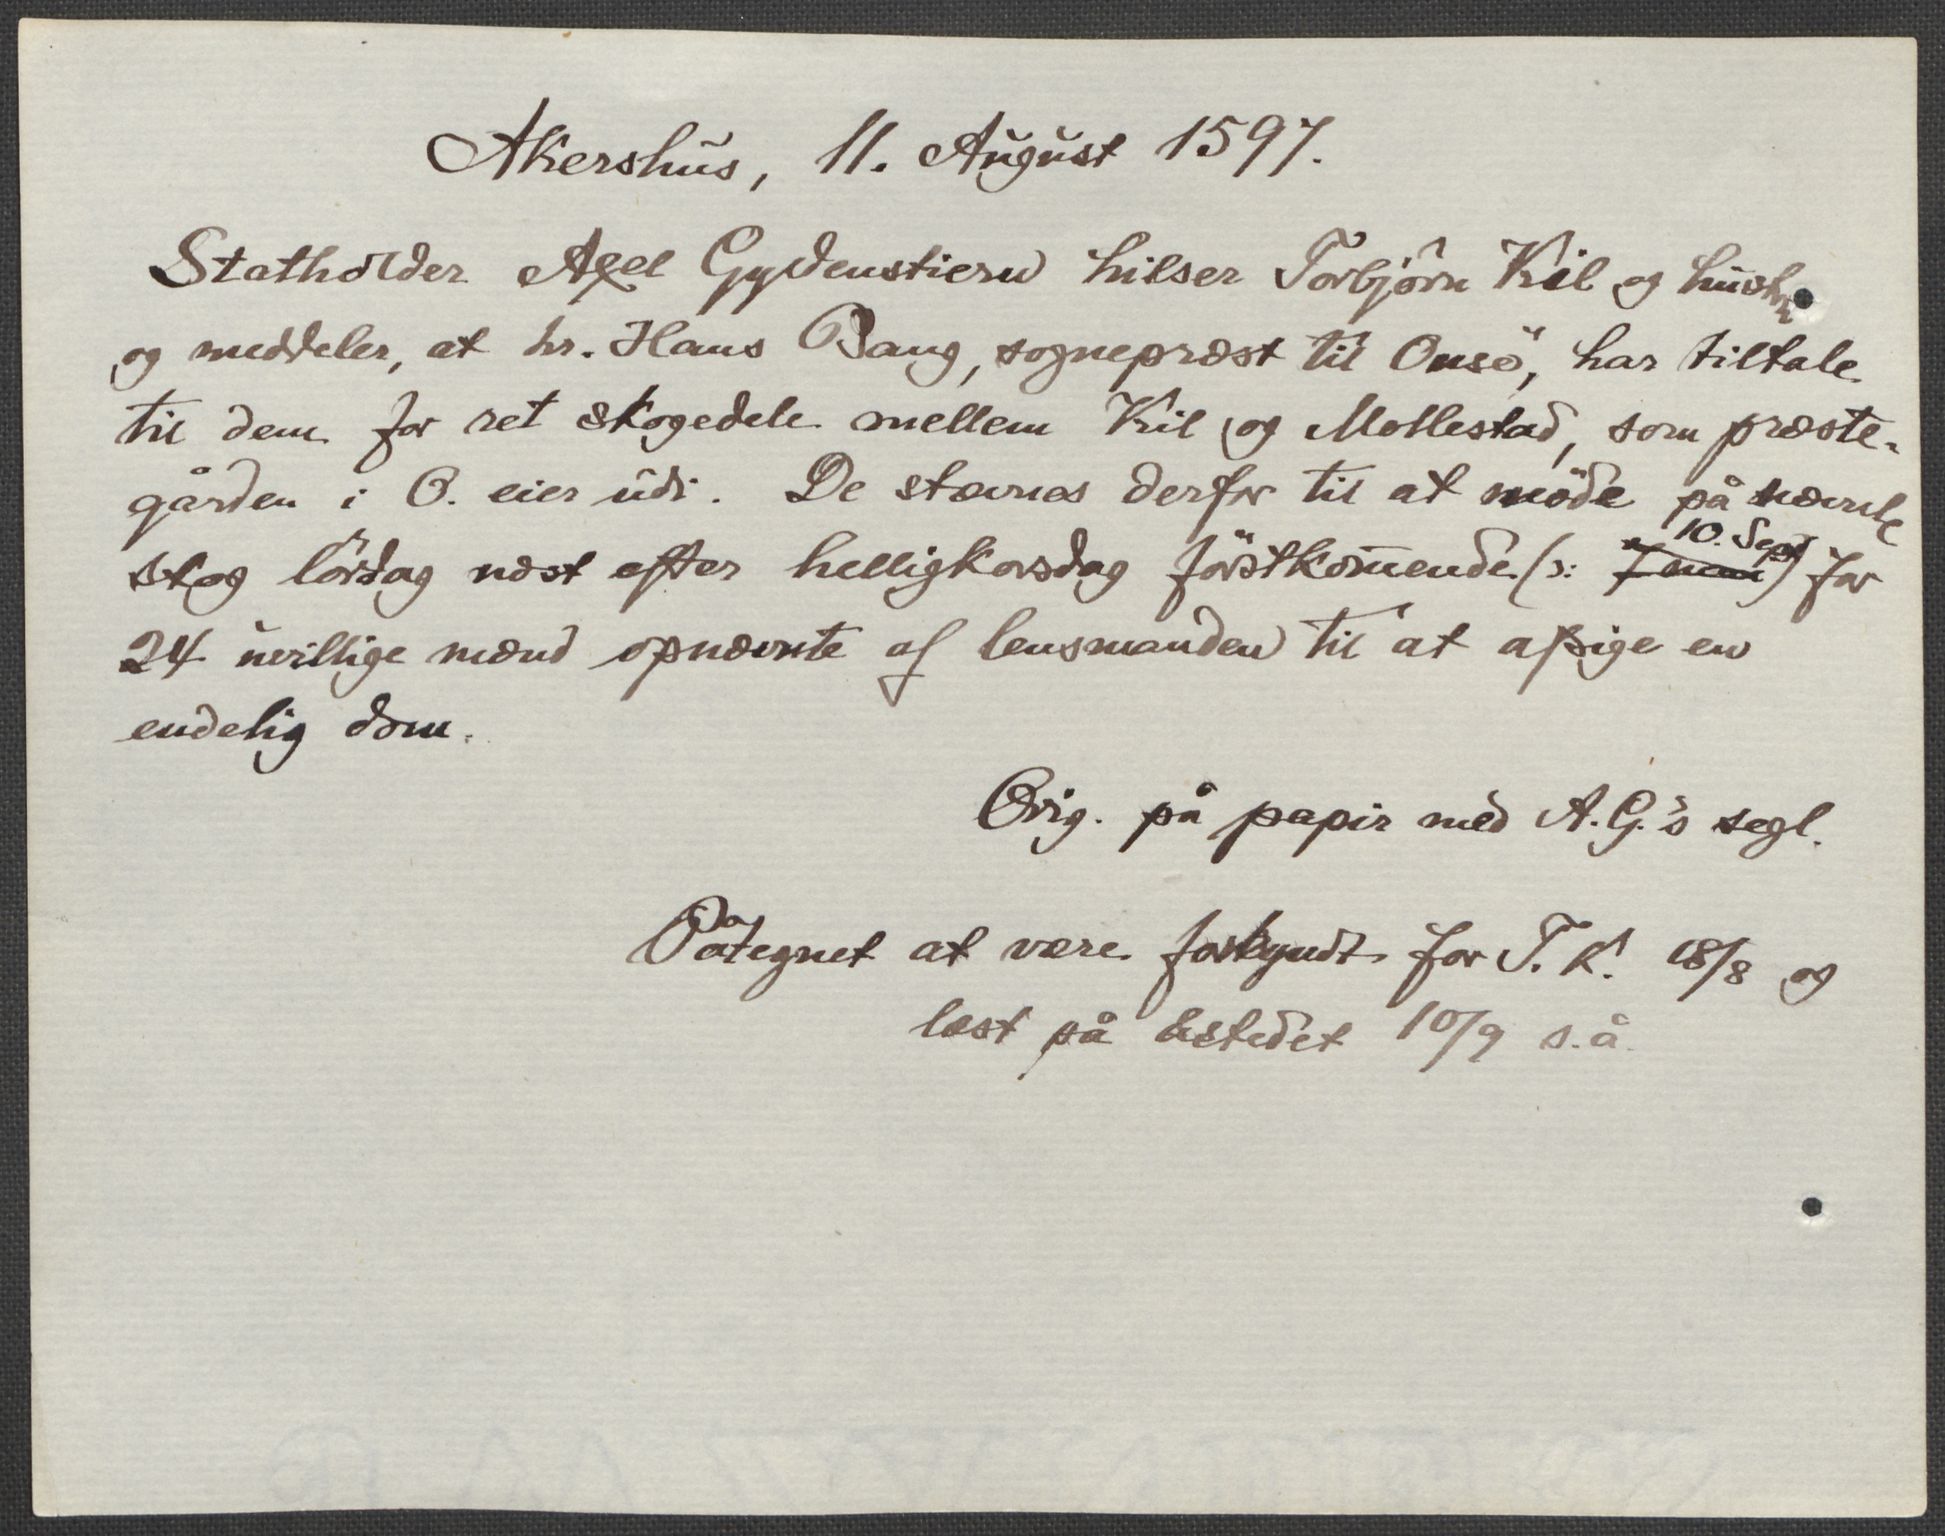 Akershus, 11. August 1597.
Statholder Axel Gyldenstiern hilser Torbjörn Kil og hustru
og meddeler, at hr. Hans Bang, sogneprest til Onsö, har tiltale
til dem for ret skogedele mellem Kil og Mollestad, som præste-
gården i O. eier udi. De stævnes derfor til at möde på nævnte
skog lördag næst efter helligkorsdag förstkom̅ende (ɔ: 10. Sept) for
24 uvillige mænd opnævnte af lensmanden til at afsige en
endelig dom.
Orig. på papir med A. G.'s segl.
Påtegnet at være forkyndt for T. K. 18/8 og
læst på åstedet 10/9 s. å.